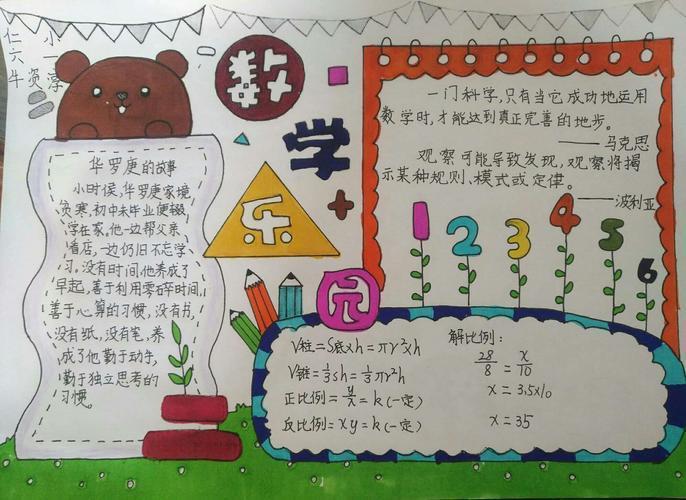 仁小
六一
牛资淳
数学乐园
华罗庚的故事
小时候,华罗庚家境
贫寒,初中未毕业便辍
学在家。他一边帮父亲
看店,一边仍旧不忘学
习。没有时间,他养成了
早起,善于利用零碎时间,
善于心算的习惯,没有书,
没有纸,没有笔,养
成了他勤于动手,
勤于独立思考的
习惯。
一门科学,只有当它成功地运用
数学时,才能达到真正完善的地步。
——马克思
观察可能导致发现,观察将揭
示某种规则、模式或定律。
——波利亚
1 2 3 4 5 6
V柱=S底×h=πr²×h
V锥=1/3sh=1/3πr²h
正比例=y/x=k(一定)
反比例=xy=k(一定)
解比例:
28/8=x/10
x=3.5×10
x=35